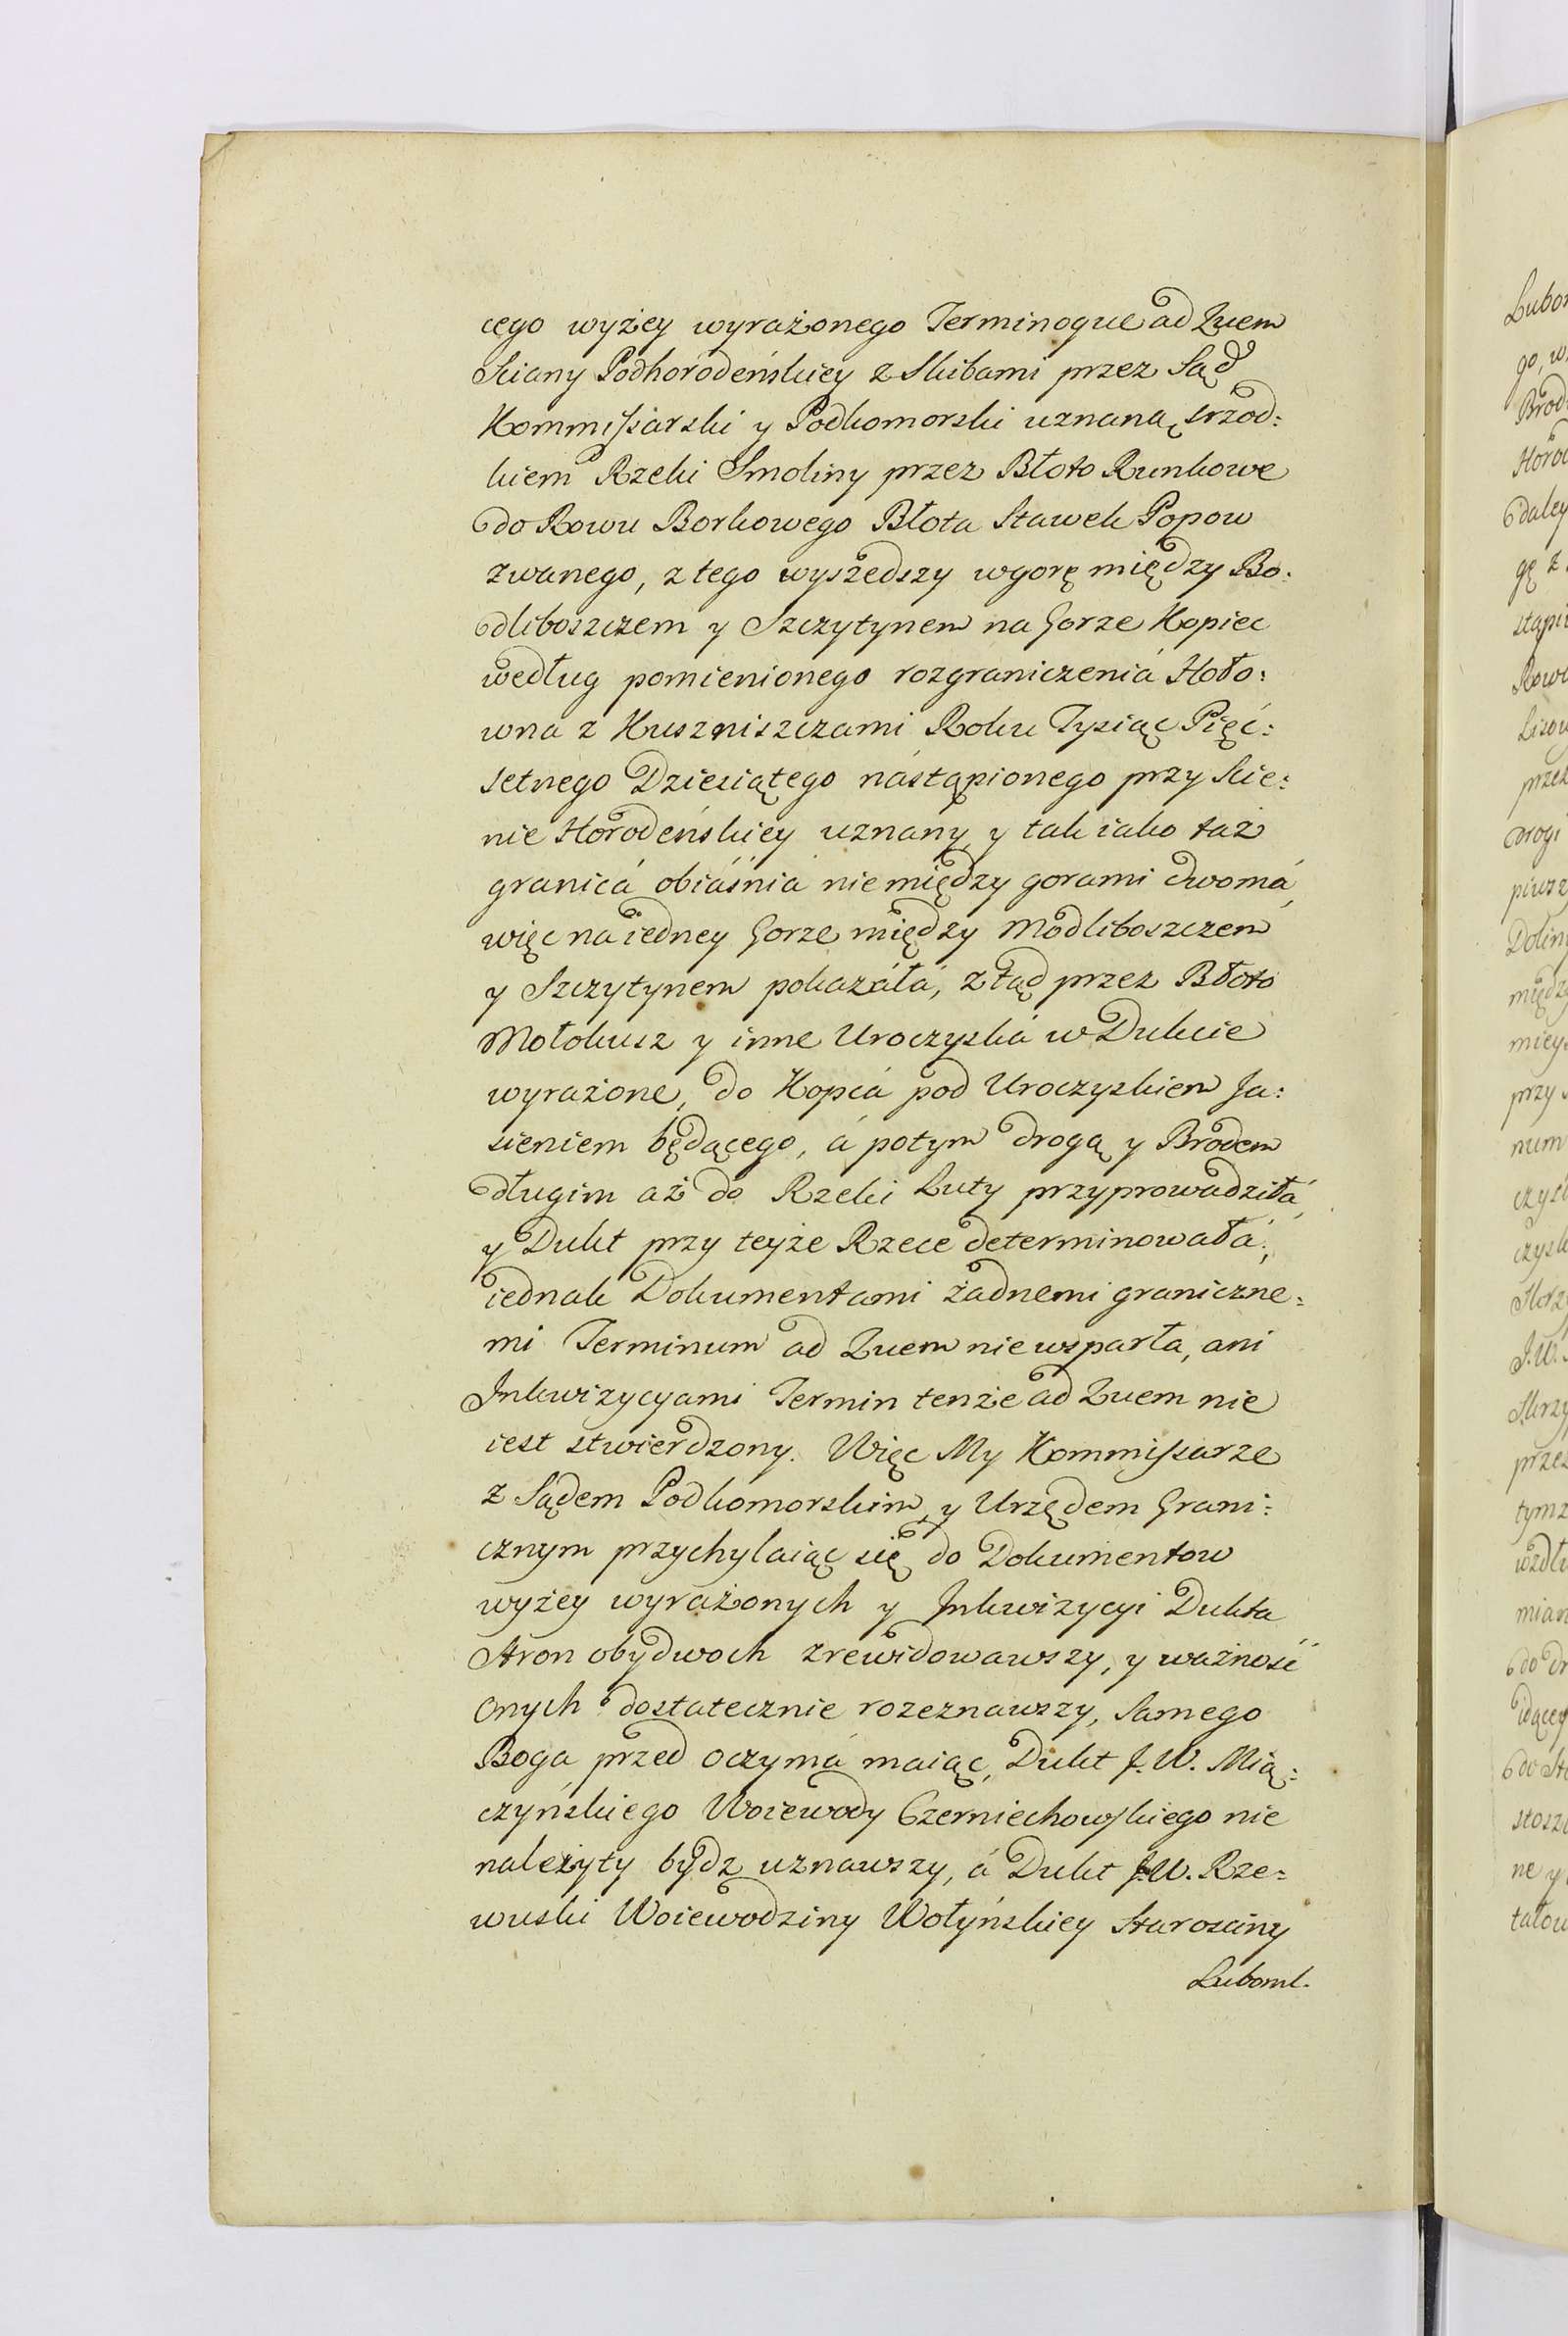 cego wyżey wyrażonego Terminoque ad Quem
Sciany Podhorodeńskiey z Skibami przez Sąd
Kommissarski y Podkomorski uznaną srzod:
kiem Rzeki Smoliny przez Błoto Runkowe
do Rowu Borkowego Błota Stawek Popow
zwanego, z tego wyszedszy wgorę między Bo:
dliboszczem y Szczytynem na Gorze Kopiec
według pomienionego rozgraniczeniá Hoło:
wna z Huszniszczami Roku Tysiąc Pięć:
setnego Dziesiątego nástąpionego przy Scie:
nie Horodeńskiey uznany y tak iako taż
granicá obiáśnia nie między gorami dwomá,
więc na iedney Gorze między Modliboszczem
y Szczytynem pokazáłá, ztąd przez Błoto
Mołokusz y inne Uroczyská w Dukcie
wyrażone, do Kopcá pod Uroczyskiem Ja:
sieniem będącego, á potym drogą y Brodem
długim aż do Rzeki Luty przyprowadziłá,
y Dukt przy teyże Rzece determinowałá;
iednak Dokumentami żadnemi graniczne:
mi Terminum ad Quem nie wsparła, ani
Inkwizycyami Termin tenże ad Quem nie
iest stwierdzony. Więc My Kommissarze
z Sądem Podkomorskim, y Urzędem Grani:
cznym przychylaiąc się do Dokumentow
wyżey wyrażonych y Inkwizycyi Dukta
Stron obydwoch zrewidowawszy, y ważność
onych dostatecznie rozeznawszy, Samego
Boga przed oczymá maiąc, Dukt J. W. Mią:
czyńskiego Woiewody Czerniechowskiego nie
należyty bydz uznawszy, á Dukt J. W. Rze:
wuski Woiewodziny Wołyńskiey Starosciny
Luboml.